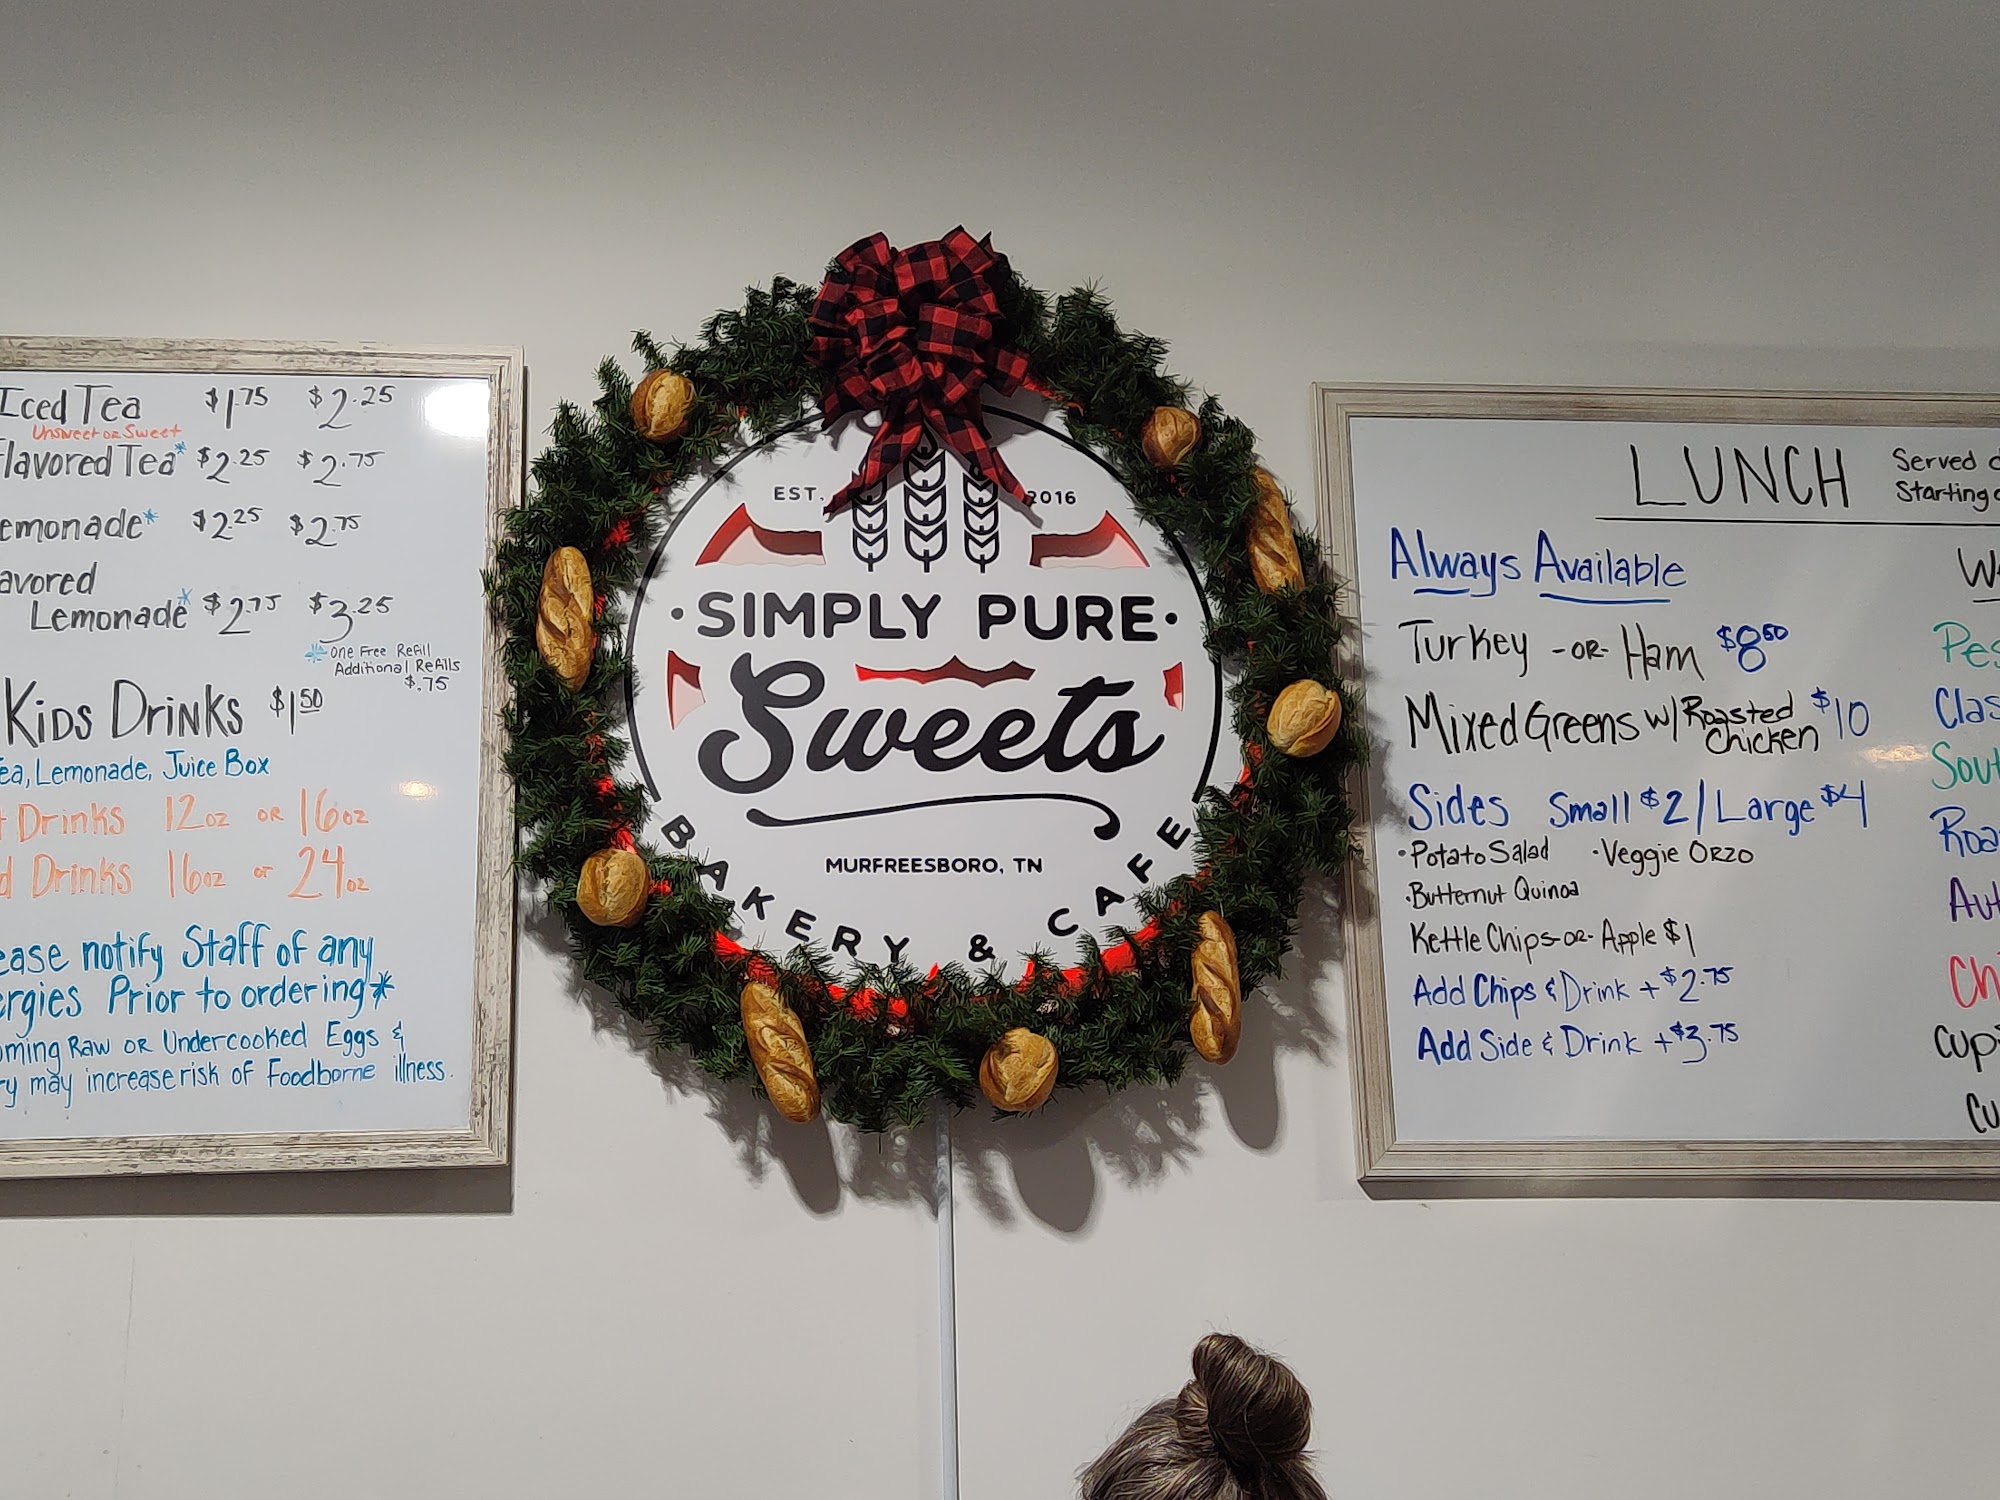 Iced Tea $1.75 $2.25
Unsweet or Sweet
Flavored Tea* $2.25 $2.75
emonade* $2.25 $2.75
avored
Lemonade* $2.75 $3.25
* One Free Refill
Additional Refills
$.75
Kids Drinks $1.50
ea, Lemonade, Juice Box
t Drinks 12oz or 16oz
d Drinks 16oz or 24oz
ease notify Staff of any
ergies Prior to ordering*
oming Raw or Undercooked Eggs &
ry may increase risk of Foodborne illness.
EST. 2016
·SIMPLY PURE·
Sweets
MURFREESBORO, TN
BAKERY & CAFE
LUNCH
Served d
Starting
Always Available
Turkey -or- Ham $8.50
Mixed Greens w/ Roasted Chicken $10
Sides Small $2 / Large $4
·Potato Salad ·Veggie Orzo
·Butternut Quinoa
Kettle Chips -or- Apple $1
Add Chips & Drink + $2.75
Add Side & Drink + $3.75
Pes
Clas
Sout
Roa
Aut
Ch
Cup
Cu